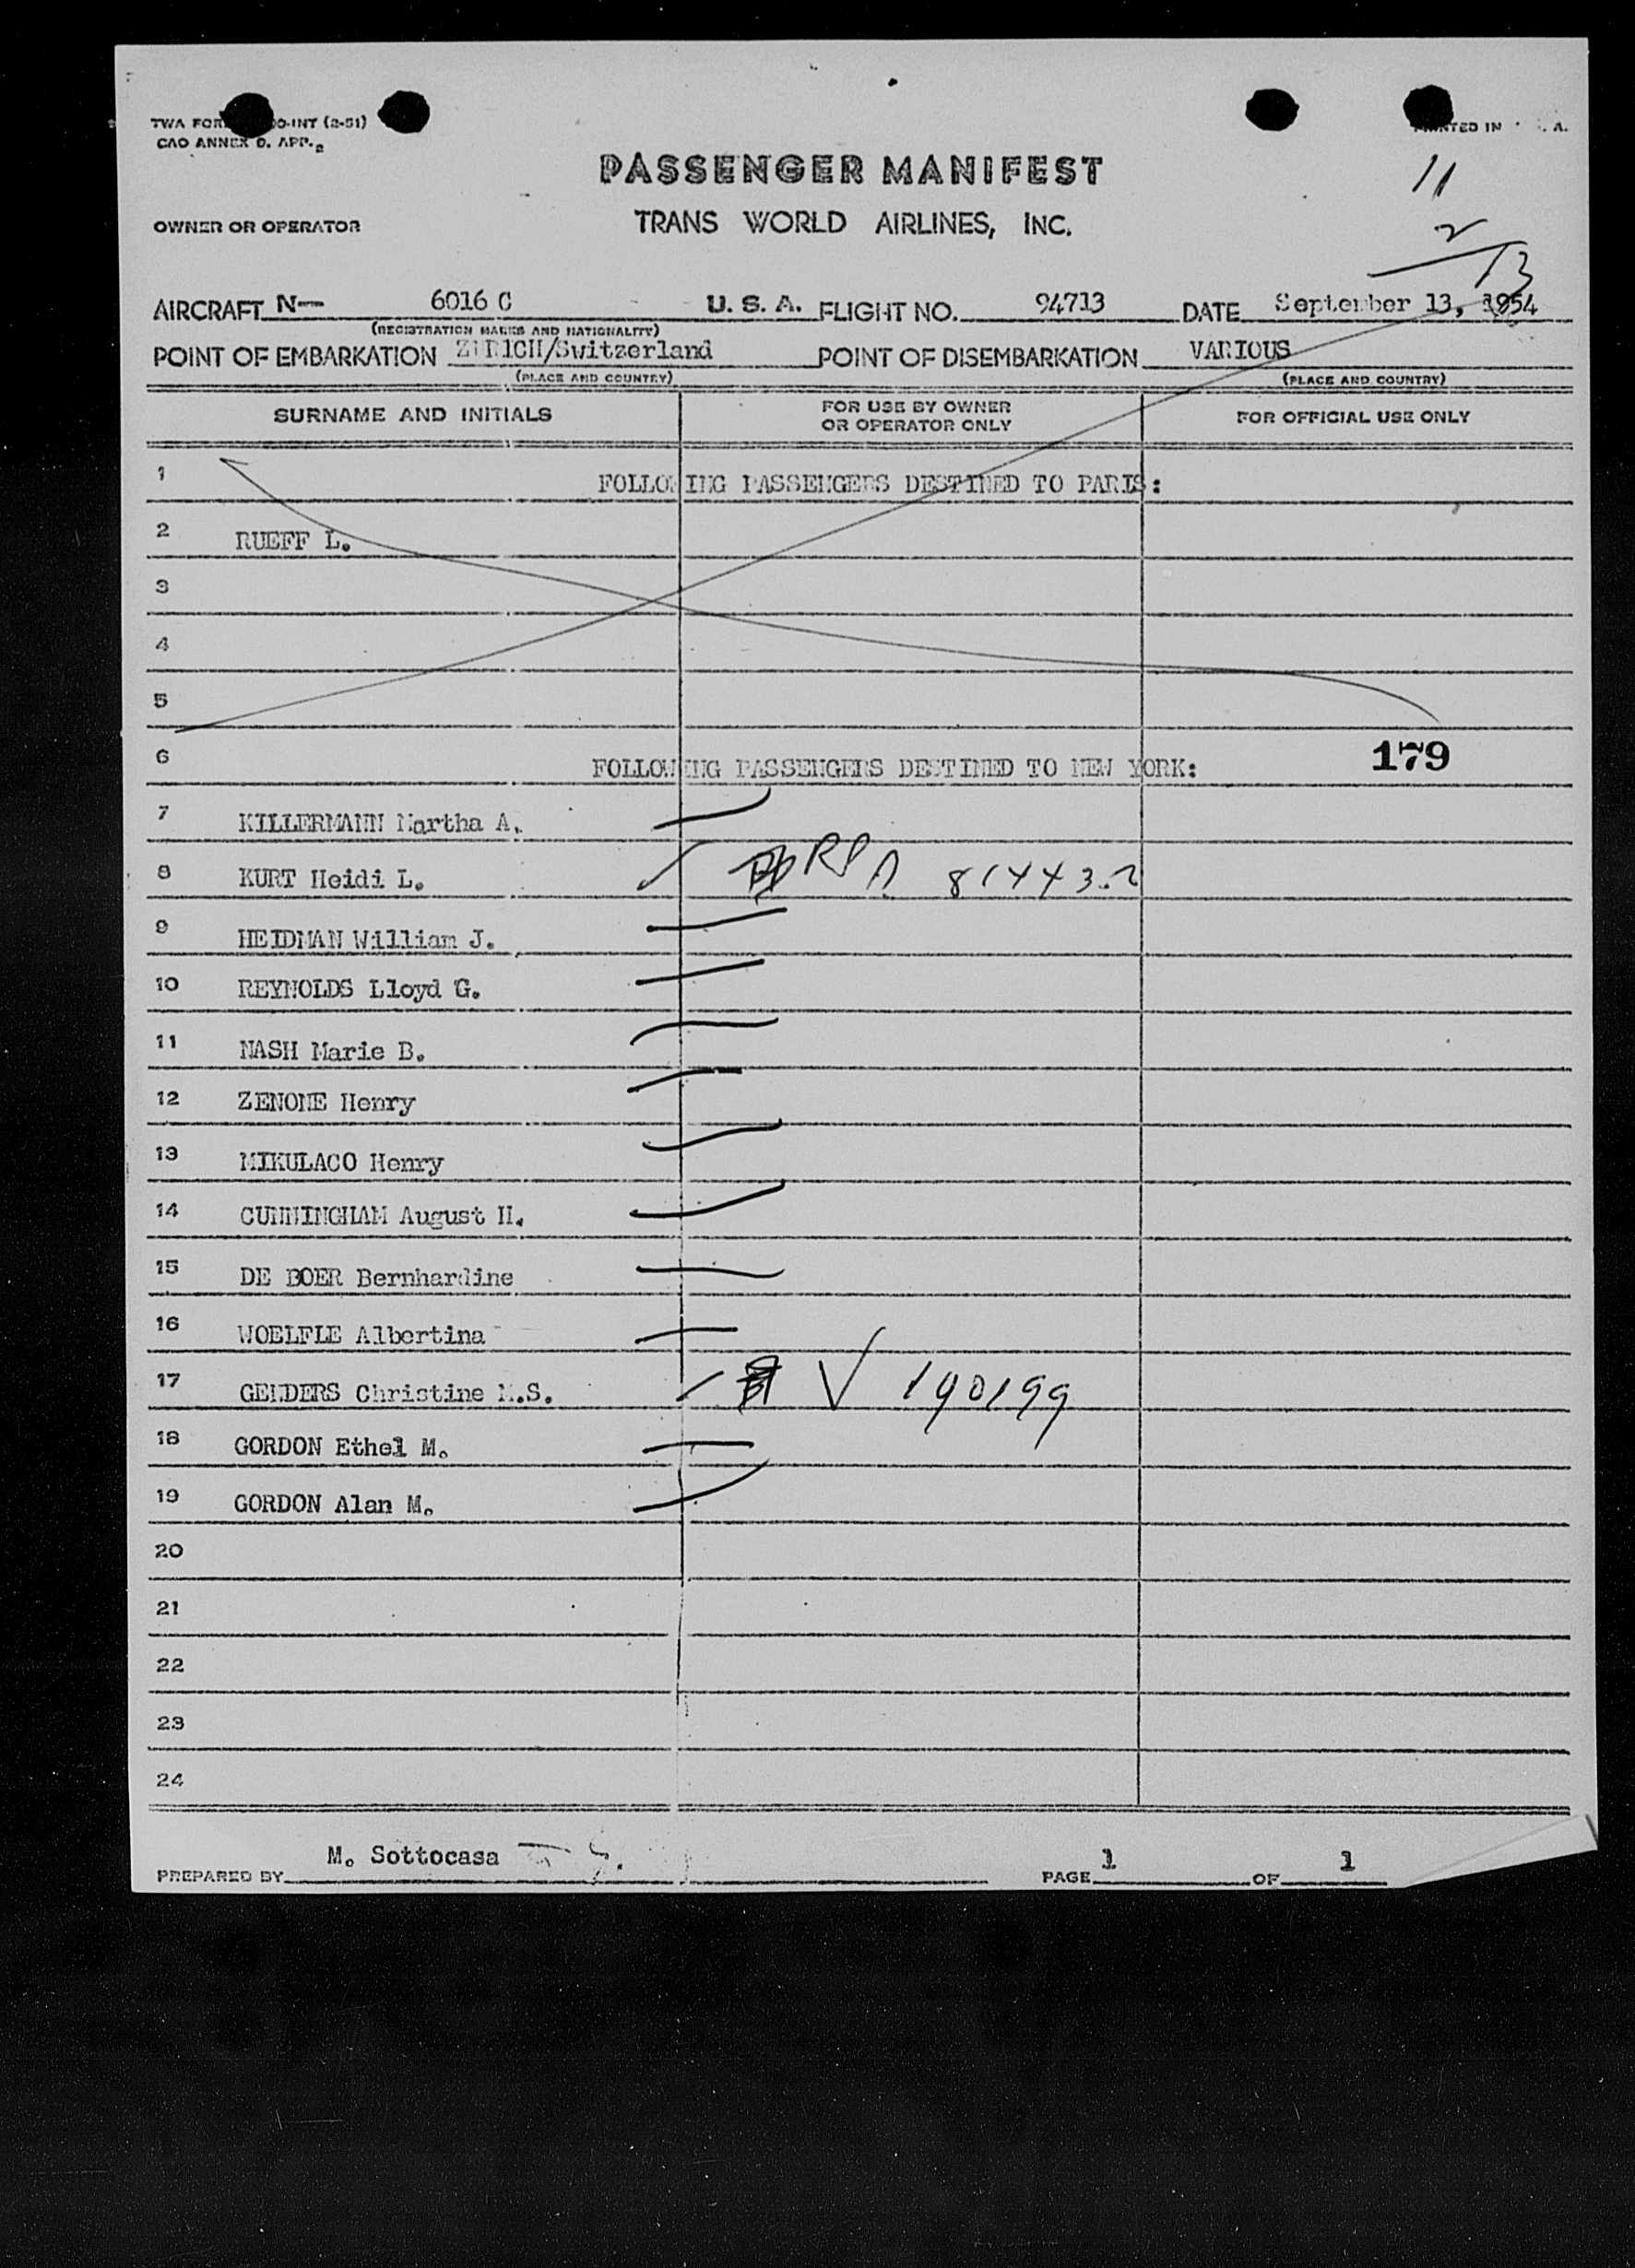 TWA FOR O-INT (2-51)
CAO ANNEX 9. APP. 2
PASSENGER MANIFEST
OWNER OR OPERATOR TRANS WORLD AIRLINES, INC.
11
2
13
AIRCRAFT N- 6016 C U. S. A. FLIGHT NO. 94713 DATE September 13, 1954
(REGISTRATION MARKS AND NATIONALITY)
POINT OF EMBARKATION ZURICH/Switzerland POINT OF DISEMBARKATION VARIOUS
(PLACE AND COUNTRY) (PLACE AND COUNTRY)
SURNAME AND INITIALS FOR USE BY OWNER OR OPERATOR ONLY FOR OFFICIAL USE ONLY
1 FOLLOWING PASSENGERS DESTINED TO PARIS:
2 RUEFF L.
3
4
5
6 FOLLOWING PASSENGERS DESTINED TO NEW YORK: 179
7 KILLERMANN Martha A.
8 KURT Heidi L.
9 HEIDMAN William J.
10 REYNOLDS Lloyd G.
11 NASH Marie B.
12 ZENONE Henry
13 MIKULACO Henry
14 CUNNINGHAM August H.
15 DE BOER Bernhardine
16 WOELFLE Albertina
17 GELDERS Christine M.S. V 190199
18 GORDON Ethel M.
19 GORDON Alan M.
20
21
22
23
24
PREPARED BY M. Sottocasa PAGE 1 OF 1